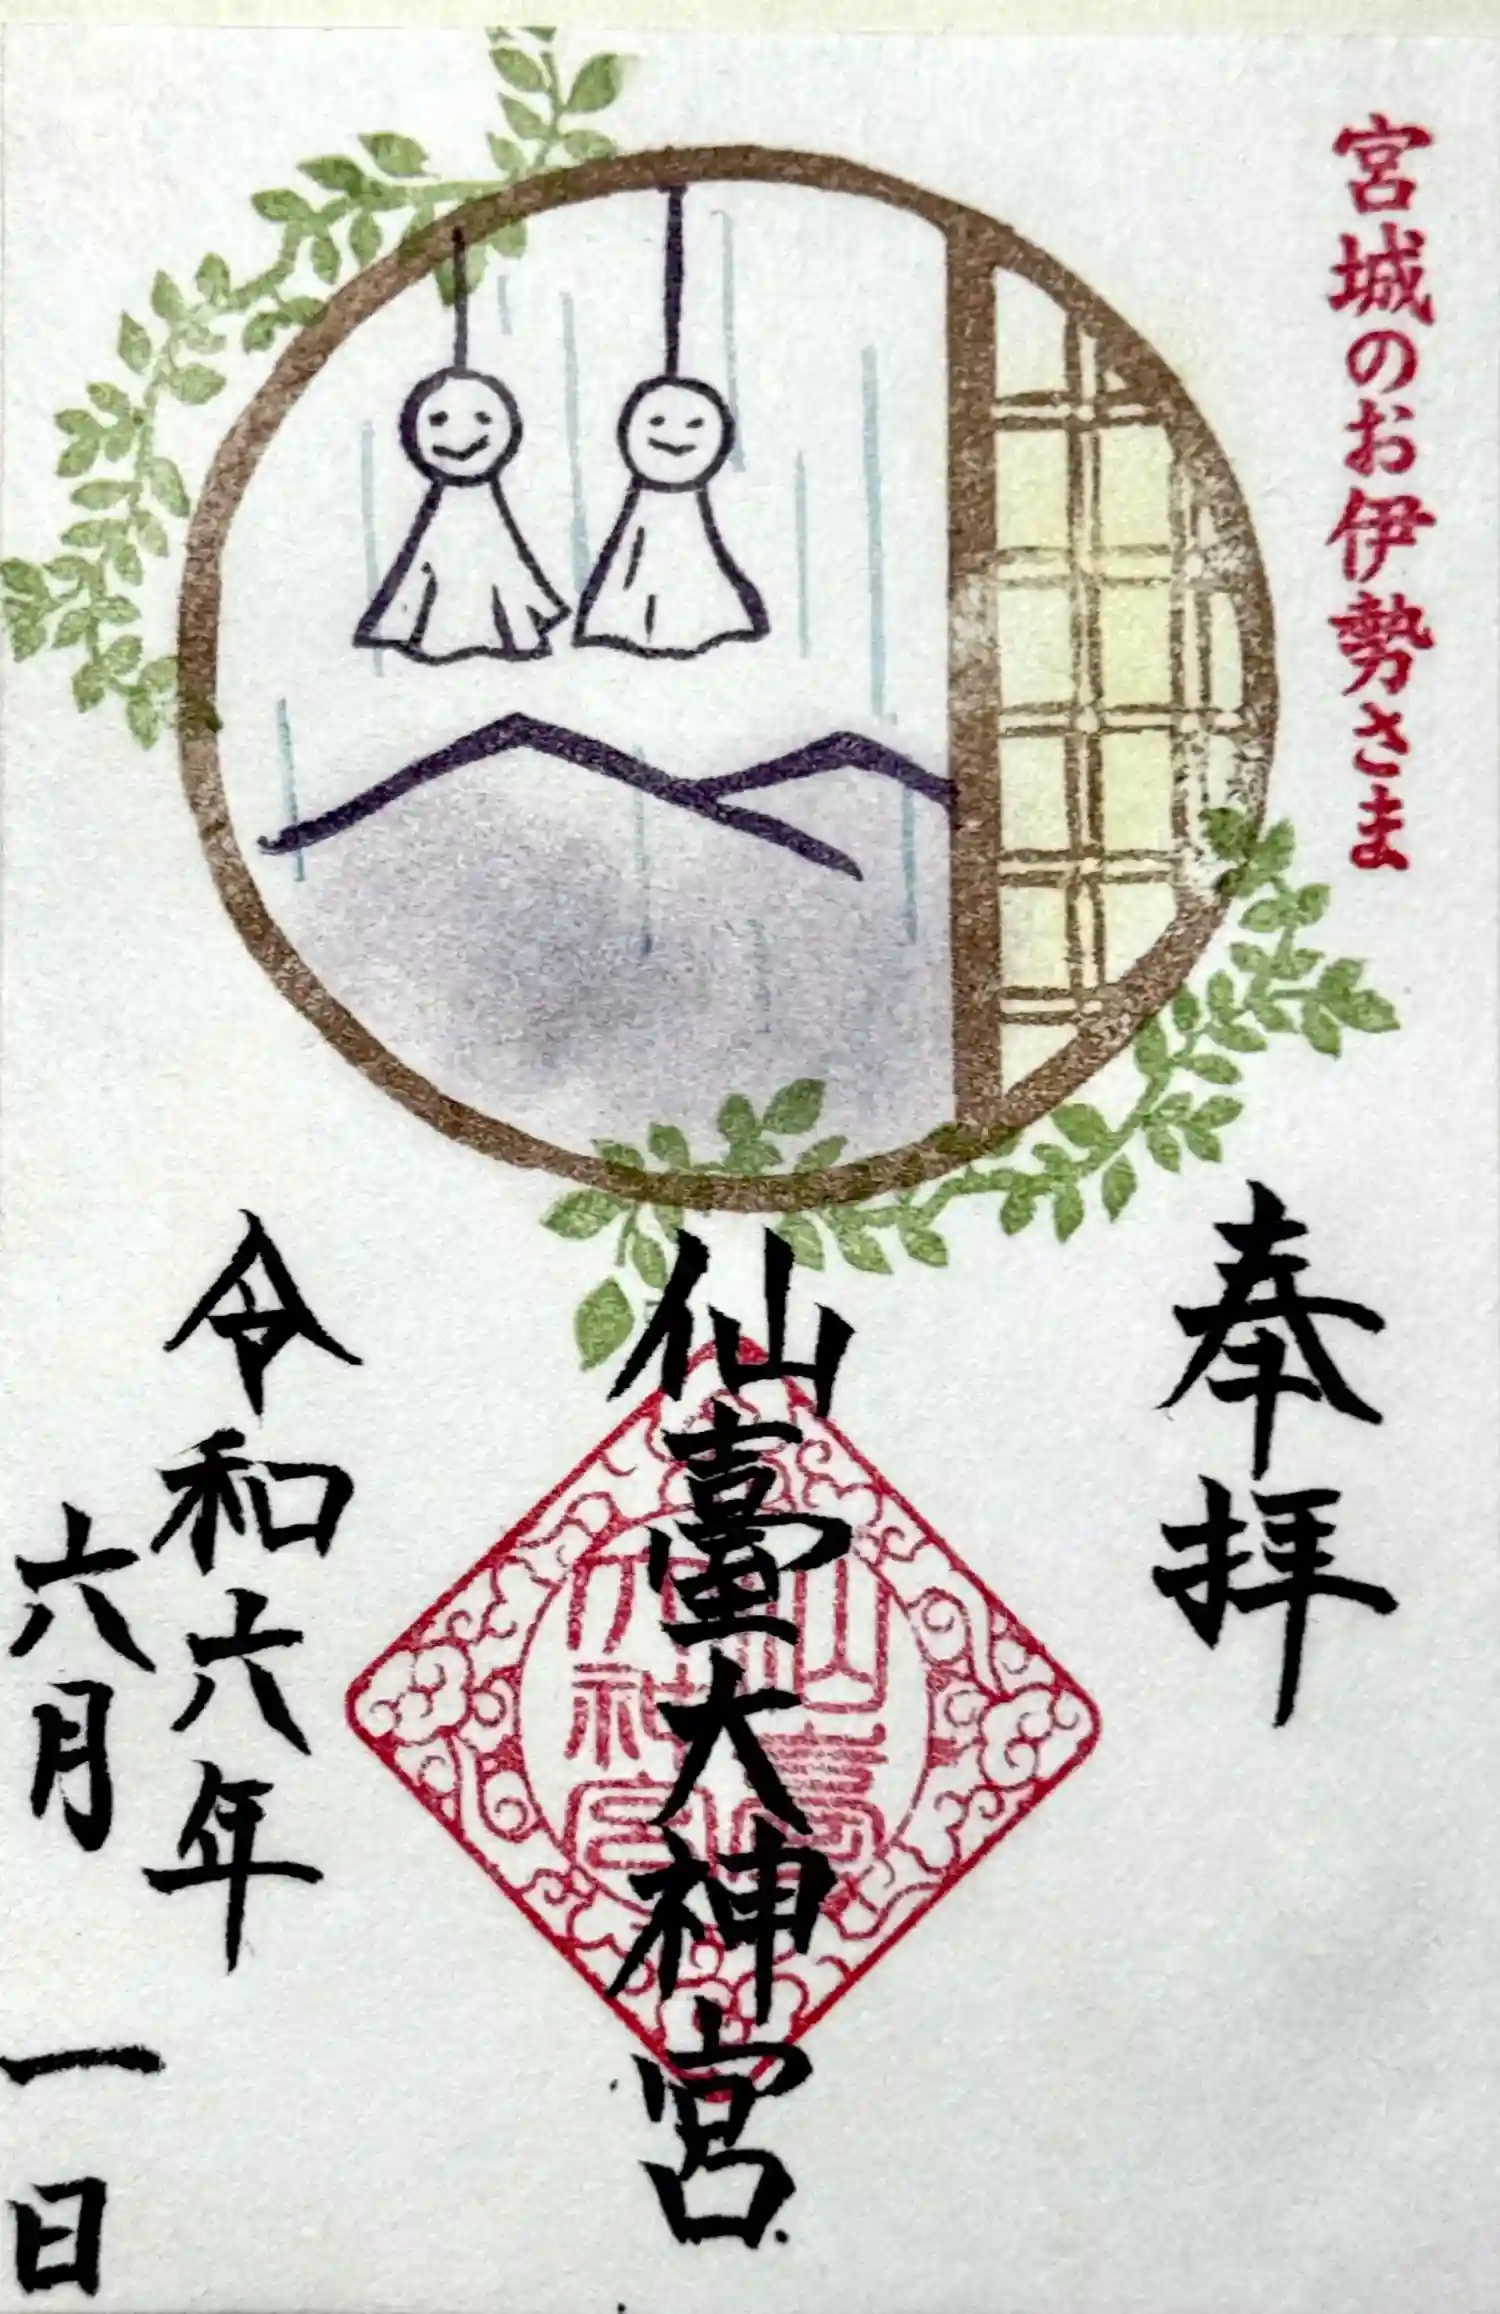 宮城のお伊勢さま
奉拝
仙臺大神宮
仙臺
大神宮
令和六年
六月一日